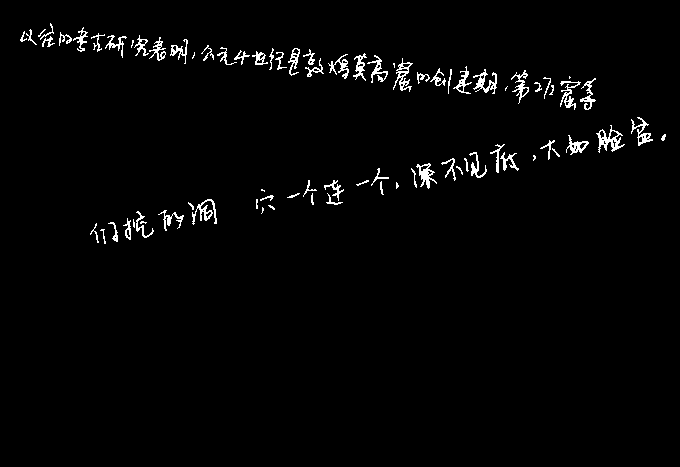 以往的考古研究表明，公元4世纪是敦煌莫高窟的创建期，第272窟等
们挖的洞 穴一个连一个，深不见底，大如脸盆。